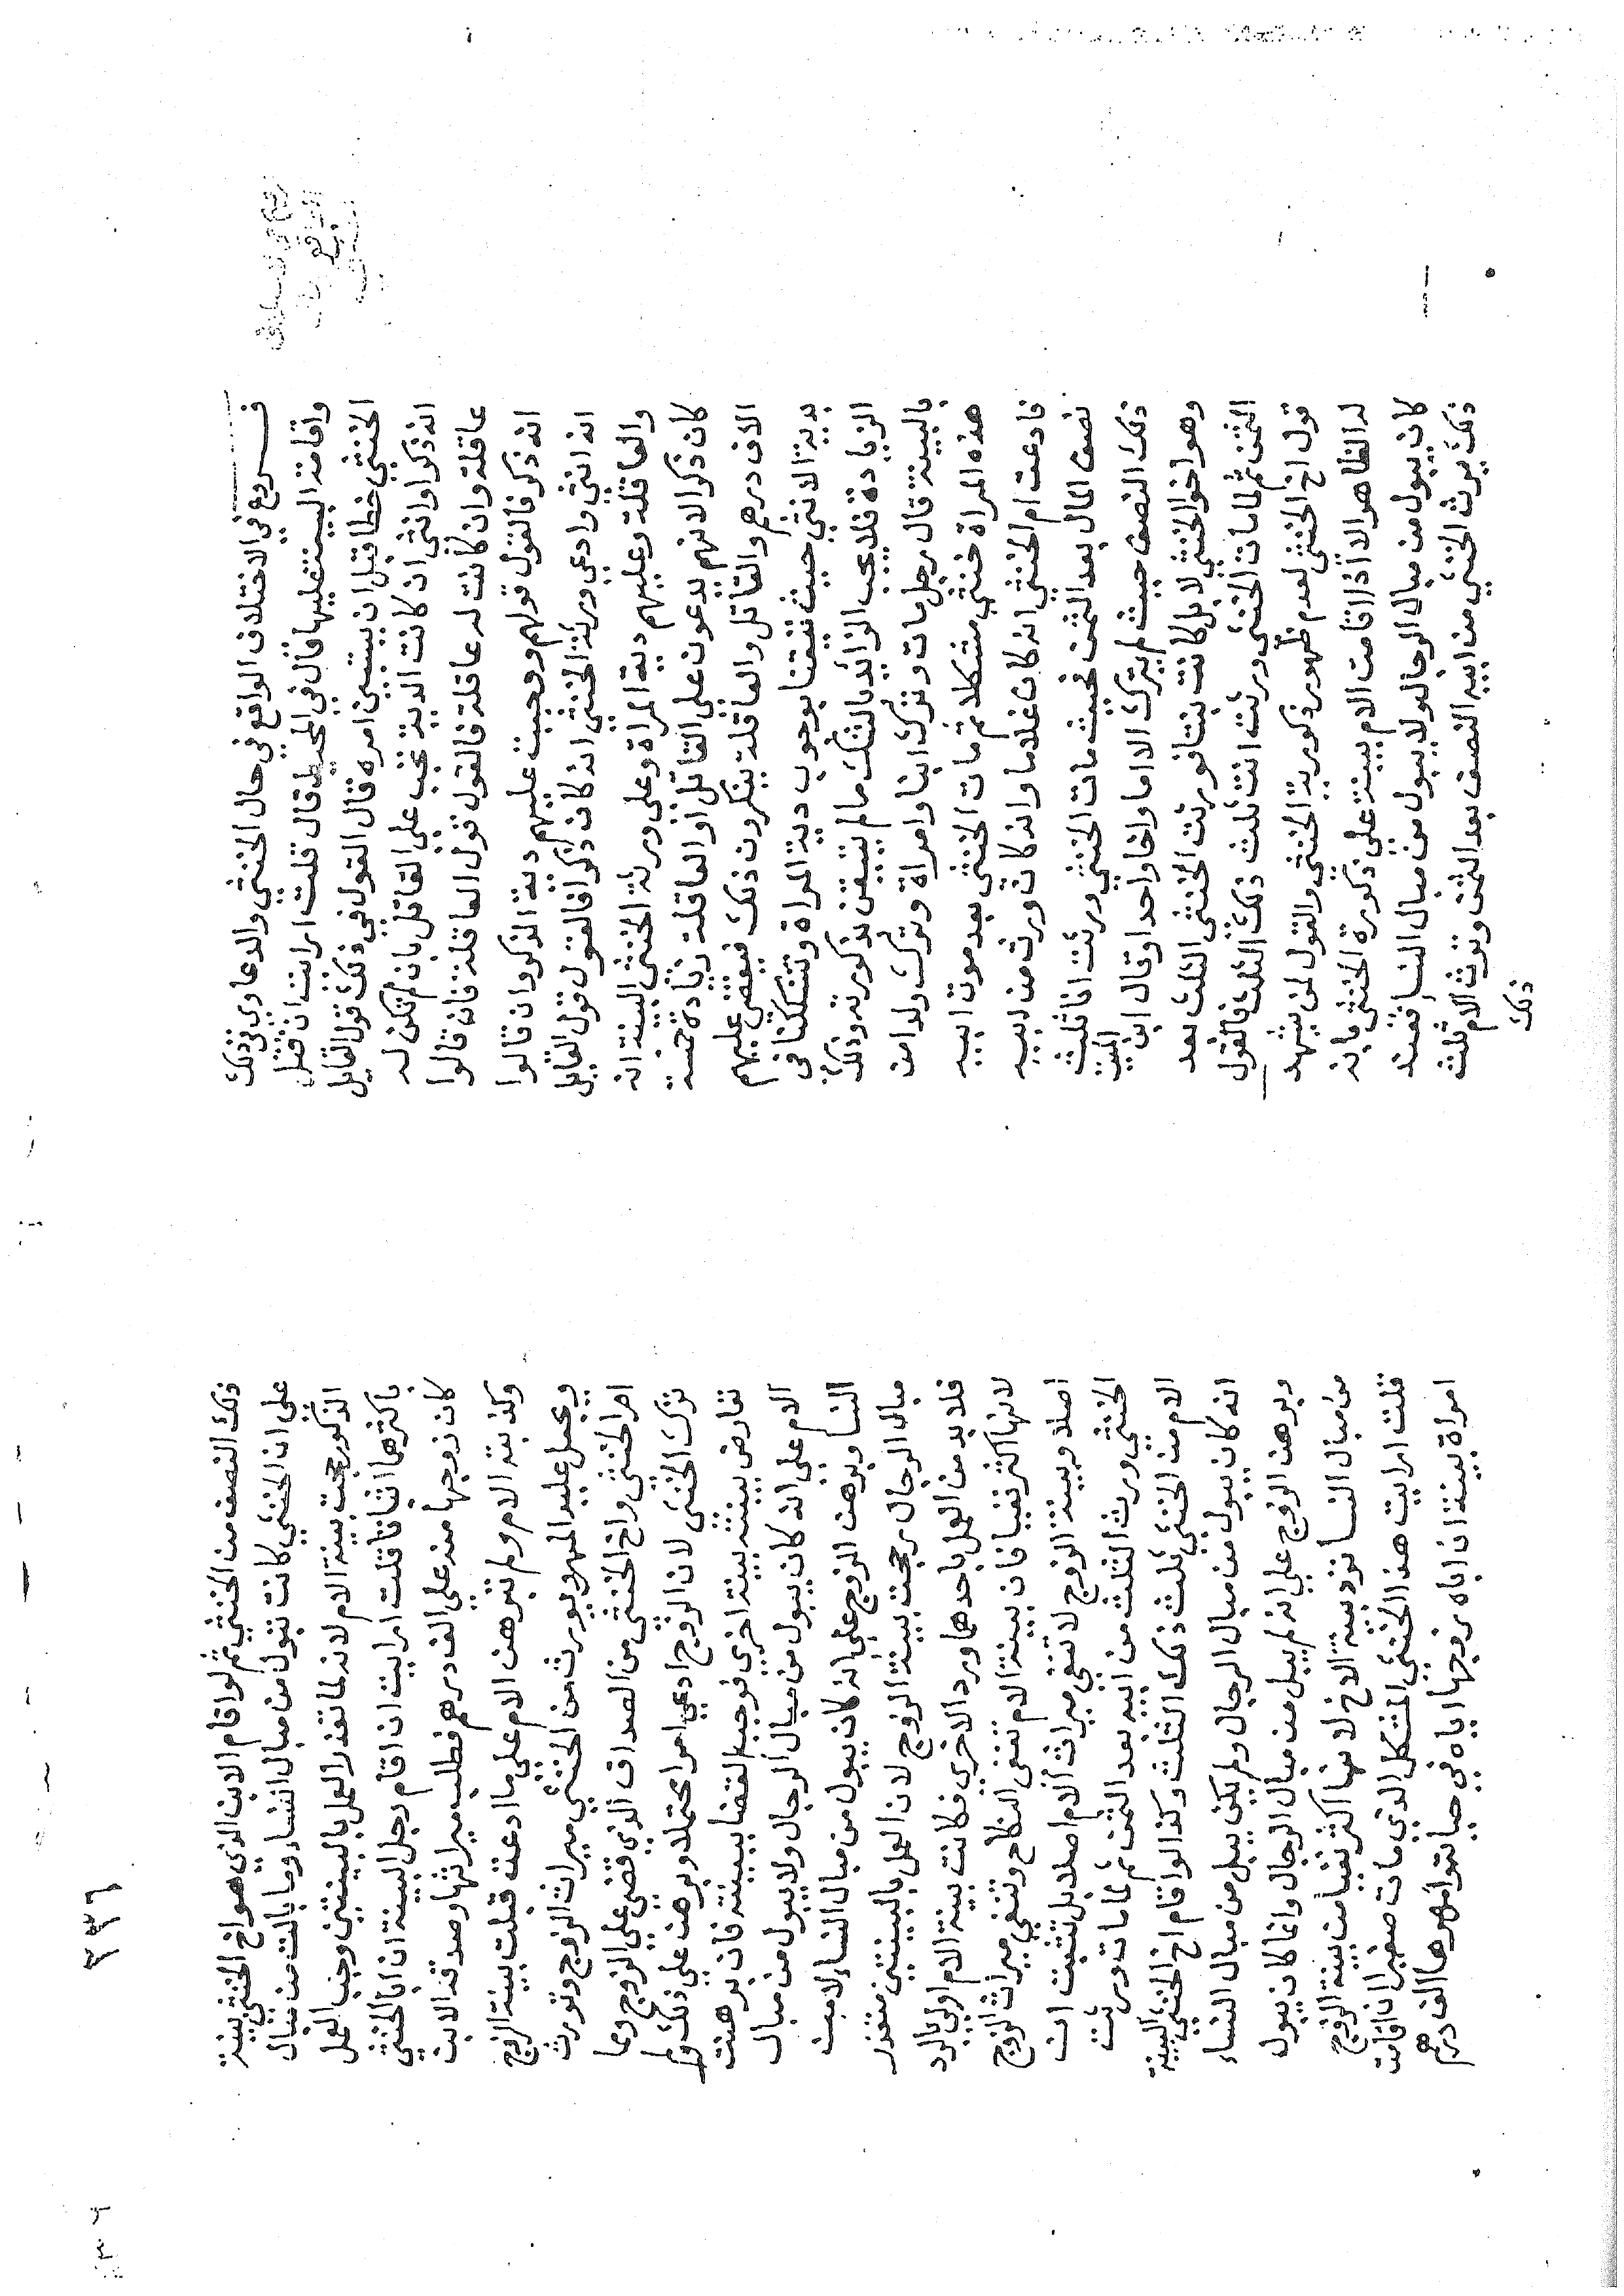 فـــروع في الاختلاف الواقع في حال الخنثي والدعاوي في ذلك
واقامة البينة عليها قال في المحيط قال قلت ارايت ان قتل
الخنثي خطا قبل ان يستبين امره قال القول في ذلك قول القاتل
انه ذكرا او انثي ان كانت الدية تجب علي القاتل بان لم تكن له
عاقلة وان كانت له عاقلة فالقول قول العاقلة فان قالوا
انه ذكر فالقول قولهم ووجبت عليهم دية الذكر وان قالوا
انه انثي وادعي ورثة الخنثي انه كان ذكرا فالقول قول القاتل
والعاقلة وعليهم دية المراة وعلي ورثة الخنثي البينة انه
كان ذكرا لانهم يدعون علي القاتل او العاقلة زيادة خمسة
الاف درهم والقاتل والعاقلة ينكرون ذلك فيقضي عليهم
بدية الانثي حيث تيقنا بوجوب دية المراة وتشككنا في
الزيادة فلا يجب الزايد بالشك ما لم نتيقن بذكورته وذلك
بالبينة قال رجل مات وترك ابنا وامراة وترك ولدا من
هذه المراة خنثي مشكلا ثم مات الخنثي بعد موت ابيه
فادعت ام الخنثي انه كان غلاما وانه كان ورث من ابيه
نصف المال بعد الثمن فحيث مات الخنثي ورثت انا ثلث
ذلك النصف حيث لم يترك الا اما واخا واحدا وقال ابن الميت
وهو اخو الخنثي لا بل كانت بنتا فورثت الخنثي الثلث بعد
الثمن ثم لما مات الخنثي ورثت انت ثلث ذلك الثلث فالقول
قول اخ الخنثي لعدم ظهور ذكورية الخنثي والقول لمن يشهد
له الظاهر الا اذا اقامت الام بينة علي ذكورة الخنثي بانه
كان يبول من مبال الرجال ولا يبول من مبال النسا فعند
ذلك يرث الخنثي من ابيه النصف بعد الثمن وترث الام ثلث
ذلك
٢٣٦
ذلك النصف من الخنثي ثم لو اقام الابن الذي هو اخ الخنثي بينة
علي ان الخنثي كانت تبول من مبال النساء وما بالت من مبال
الذكور رجحت بينة الام لانه لما تعذر العمل بالبينتين وجب العمل
باكثرهما اثباتا قلت ارايت ان اقام رجل البينة ان ابا الخنثي
كان زوجها منه علي الف درهم فطلب ميراثها وصدقه الابن
وكذبته الام ولم تبرهن الام علي ما ادعت قبلت بينة الزوج
ويجعل عليه المهر ويورث من الخنثي ميراث الزوج وتورث
ام الخنثي واخ الخنثي من الصداق الذي قضي علي الزوج ومما
ترك الخنثي لان الزوج ادعي امرا محتملا وبرهن علي ذلك ولم
تعارض بينته بينة اخري فوجب القضا ببينته فان برهنت
الام علي انه كان يبول من مبال الرجال ولا يبول من مبال
النسا وبرهن الزوج علي انه كان يبول من مبال النساء لا من
مبال الرجال رجحت بينة الزوج لان العمل بالبينتين متعذر
فلا بد من العمل باحدهما ورد الاخري فكانت بينة الام اولي بالرد
لانها اكثر نفيا فان بينة الام تنفي النكاح وتنفي ميراث الزوج
اصلا وبينة الزوج لا تنفي ميراث الام اصلا بل تثبت ان
الخنثي ورث الثلث من ابيه بعد الثمن ثم لما مات ورثت
الام من الخنثي ثلث ذلك الثلث وكذا لو اقام اخ الخنثي البينة
انه كان يبول من مبال الرجال ولم يكن يبل من مبال النساء
وبرهن الزوج علي انه لم يبل من مبال الرجال وانما كان يبول
من مبال النسا ترد بينة الاخ لانها اكثر نفيا من بينة الزوج
قلت ارايت هذا الخنثي المشكل الذي مات صغيرا ان اقامت
امراة بينة ان اباه زوجها اياه في حياته وامهرها الف درهم